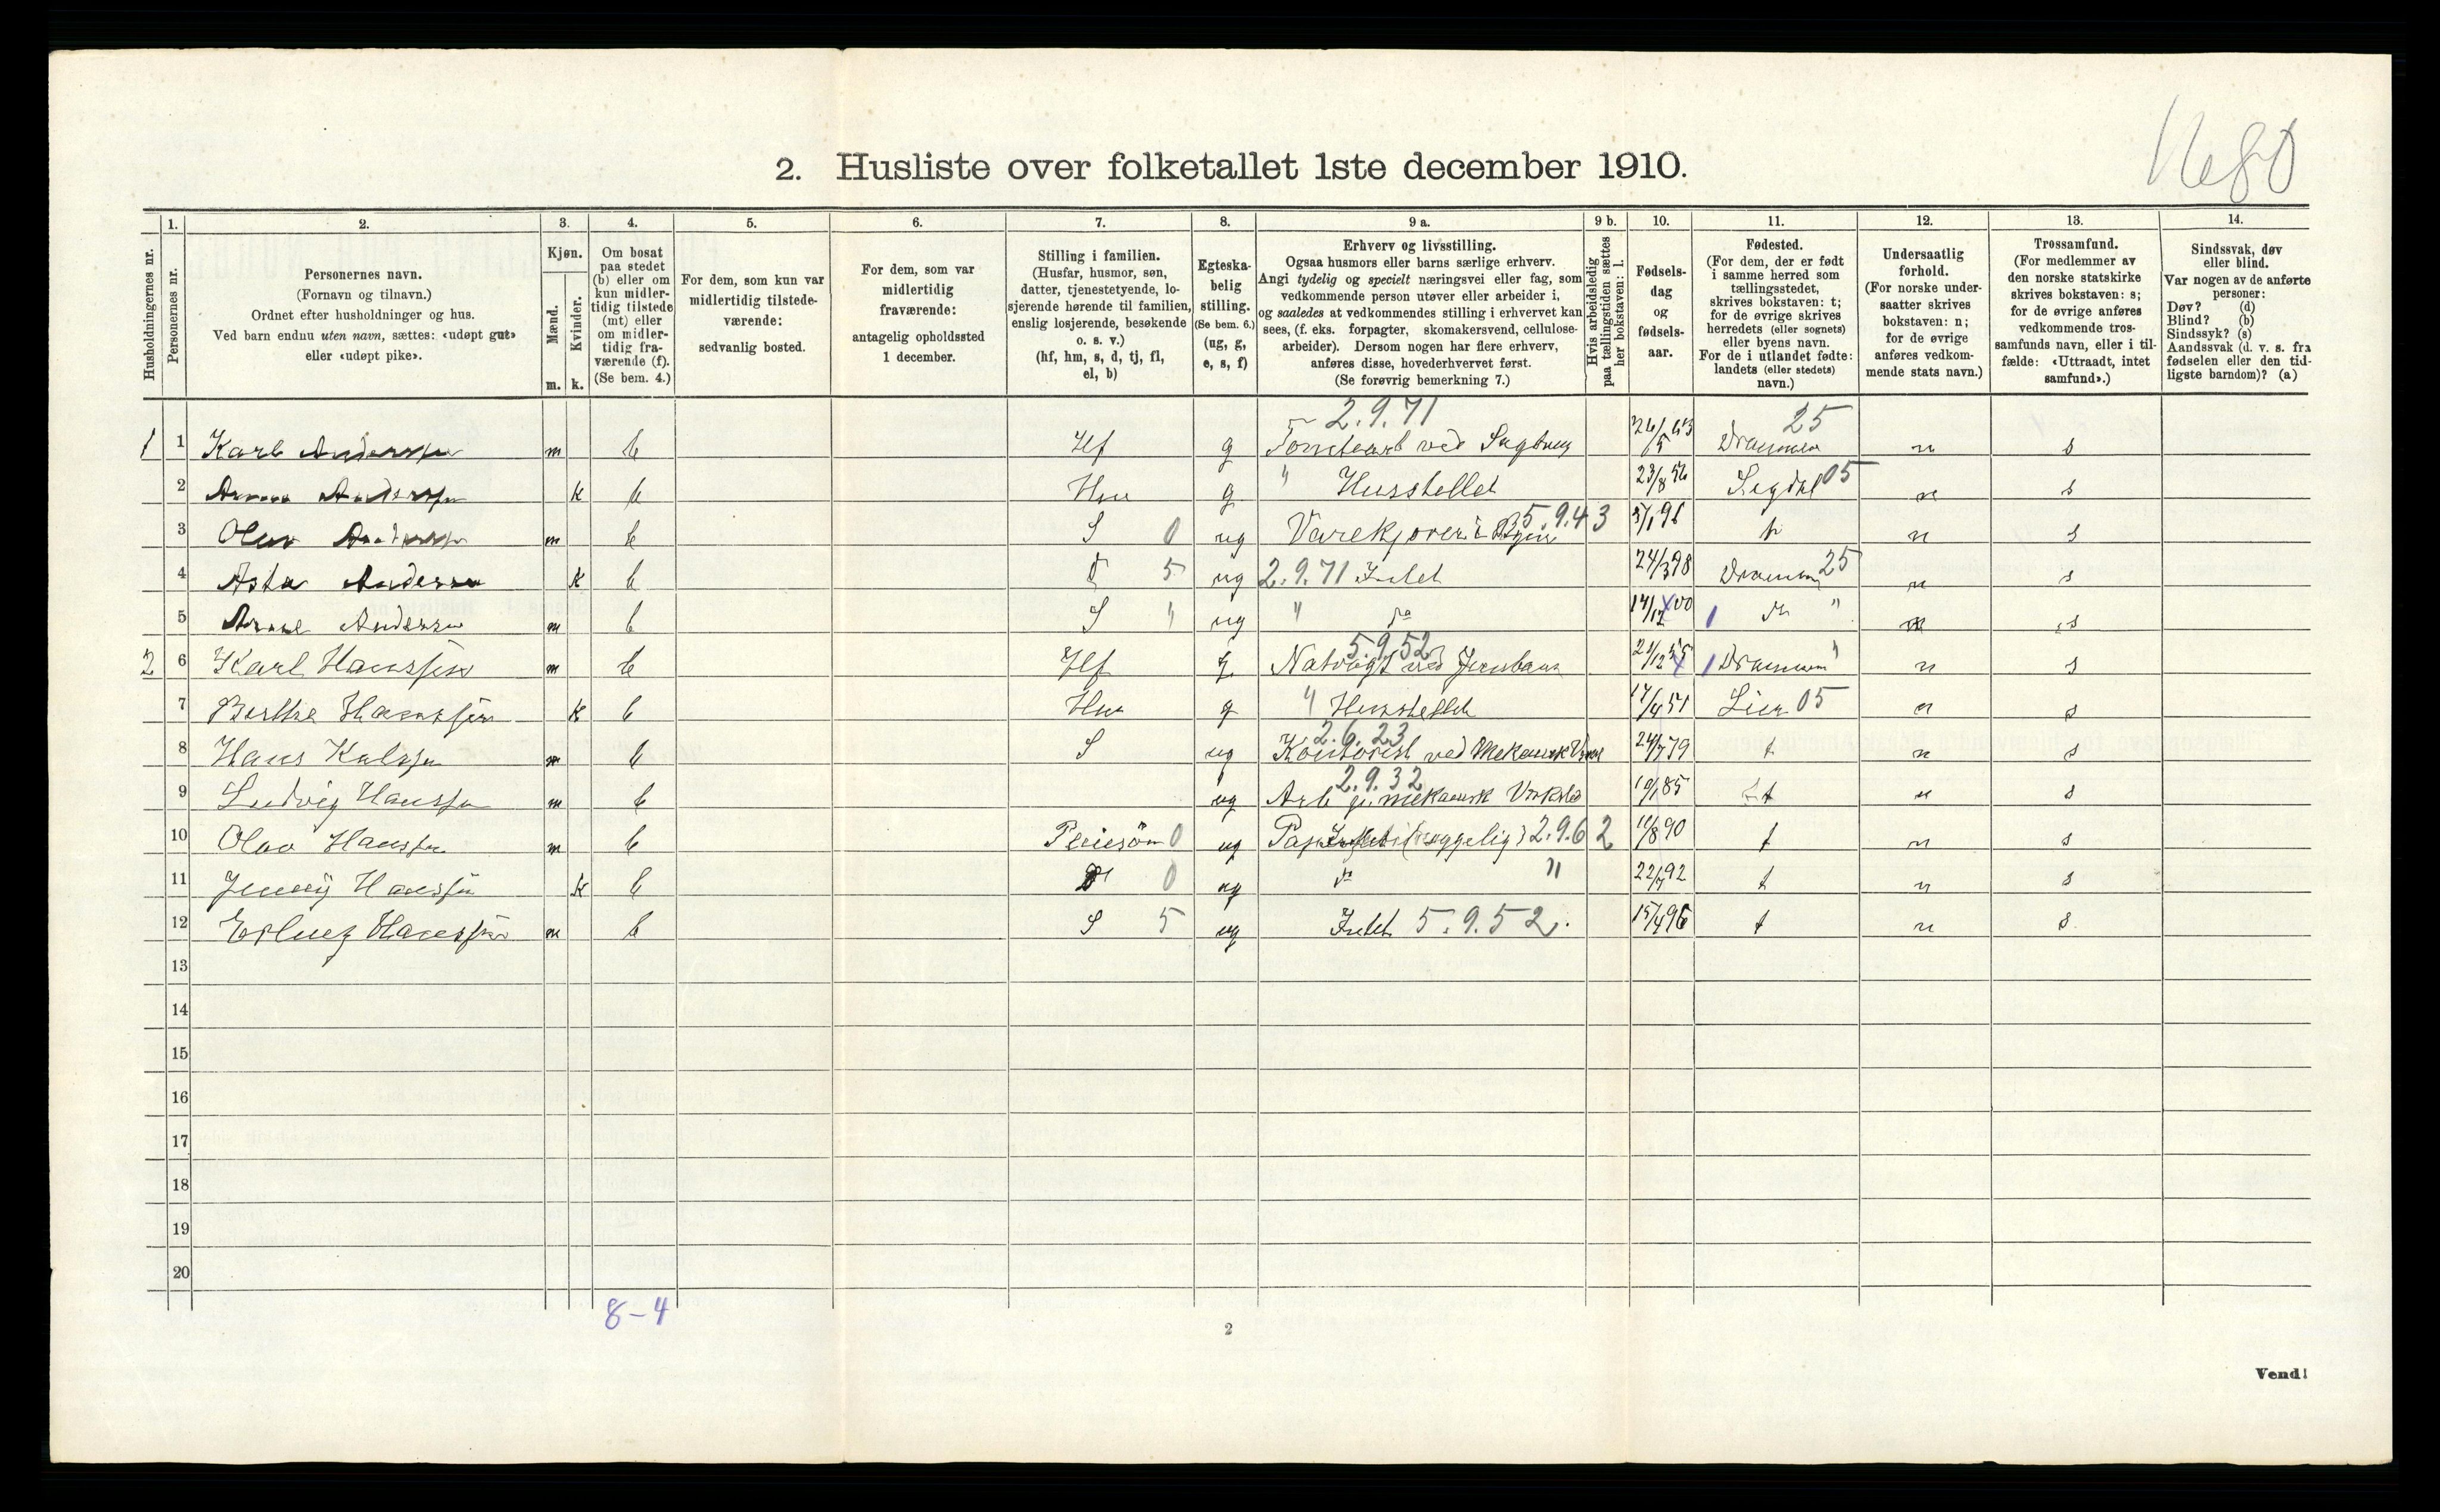 1680
2. Husliste over folketallet 1ste december 1910.
Husholdningernes nr.
1. Personernes nr.
2. Personernes navn.
(Fornavn og tilnavn.)
Ordnet efter husholdninger og hus.
Ved barn endnu uten navn, sættes: «udøpt gut»
eller «udøpt pike».
3. Kjøn.
Mænd. m.
Kvinder. k.
4. Om bosat
paa stedet
(b) eller om
kun midler-
tidig tilstede
(mt) eller
om midler-
tidig fra-
værende (f).
(Se bem. 4.)
5. For dem, som kun var
midlertidig tilstede-
værende:
sedvanlig bosted.
6. For dem, som var
midlertidig
fraværende:
antagelig opholdssted
1 december.
7. Stilling i familien.
(Husfar, husmor, søn,
datter, tjenestetyende, lo-
sjerende hørende til familien,
enslig losjerende, besøkende
o. s. v.)
(hf, hm, s, d, tj, fl,
el, b)
8. Egteska-
belig
stilling.
(Se bem. 6.)
(ug, g,
e, s, f)
9 a. Erhverv og livsstilling.
Ogsaa husmors eller barns særlige erhverv.
Angi tydelig og specielt næringsvei eller fag, som
vedkommende person utøver eller arbeider i,
og saaledes at vedkommendes stilling i erhvervet kan
sees, (f. eks. forpagter, skomakersvend, cellulose-
arbeider). Dersom nogen har flere erhverv,
anføres disse, hovederhvervet først.
(Se forøvrig bemerkning 7.)
9 b. Hvis arbeidsledig
paa tællingstiden sættes
her bokstaven: l.
10. Fødsels-
dag
og
fødsels-
aar.
11. Fødested.
(For dem, der er født
i samme herred som
tællingsstedet,
skrives bokstaven: t;
for de øvrige skrives
herredets (eller sognets)
eller byens navn.
For de i utlandet fødte:
landets (eller stedets)
navn.)
12. Undersaatlig
forhold.
(For norske under-
saatter skrives
bokstaven: n;
for de øvrige
anføres vedkom-
mende stats navn.)
13. Trossamfund.
(For medlemmer av
den norske statskirke
skrives bokstaven: s;
for de øvrige anføres
vedkommende tros-
samfunds navn, eller i til-
fælde: «Uttraadt, intet
samfund».)
14. Sindssvak, døv
eller blind.
Var nogen av de anførte
personer:
Døv? (d)
Blind? (b)
Sindssyk? (s)
Aandssvak (d. v. s. fra
fødselen eller den tid-
ligste barndom)? (a)
2.9.71 25
1 1 Karl Anderssen m b Hf g Tomtearb ved Drammen n s
2 Anna Anderssen k b Hm g " Husstellet 23/8 56 Sigdal 05 n s
3 Olav Anderssen m b S 0 ug Varekjører i Byen 5.9.43 96 n s
4 Asta Anderssen k b D 5 ug 2.9.71 Intet 24/3 98 Drammen 25 n s
5 Anderssen m b S " ug " do 00 1 do " n s
5.9.52
2 6 Karl Hanssen m b Hf g Natvagt ved Jernbane 1 Drammen " n s
7 Berthe Hanssen k b Hm g " Husstellet 17/4 51 Lier 05 n s
2.6.23
8 Hans Karlsen m b S ug Kontorist ved Mekanisk 24/7 79 t n s
2.9.32
9 Ludvig Hanssen m b ug Arb Mekanisk 85 t n s
10 Olav Hanssen m b Pleiesøn 0 ug 2.9.62 90 t n s
11 Jenny Hanssen k b D 0 ug do " 22/7 92 t n s
12 Erling Hanssen m b S 5 ug Intet 5.9.52. 15/4 96 t n s
13
14
15
16
17
18
19
20
8-4
2
Vend!